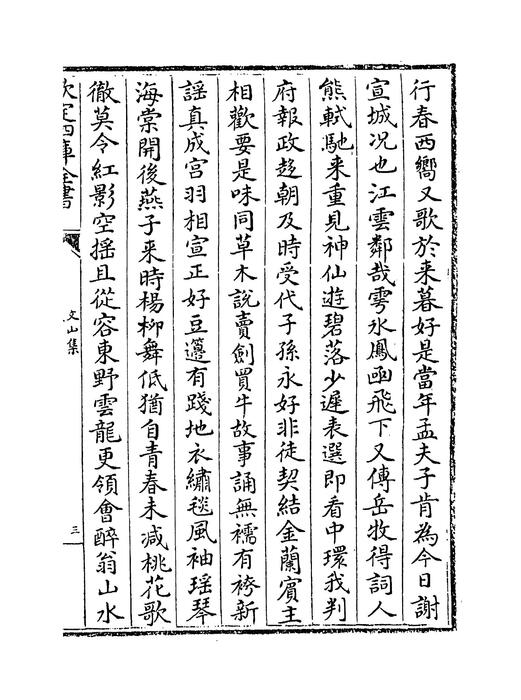 行春西嚮又歌於來暮好是當年孟夫子肯為今日謝
宣城况也江雲鄰哉雩水鳳凾飛下又傳岳牧得詞人
熊軾馳来重見神仙遊碧落少遲表選即看中環我判
府報政趍朝及時受代子孫永好非徒契結金蘭賓主
相歡要是味同草木說賣劍買牛故事誦無襦有袴新
謡真成宫羽相宣正好豆籩有踐地衣繡毯風袖瑶琴
海棠開後燕子来時楊柳舞低猶自青春未减桃花歌
徹莫令紅影空摇且從容東野雲龍更領會醉翁山水
欽定四庫全書
文山集
三